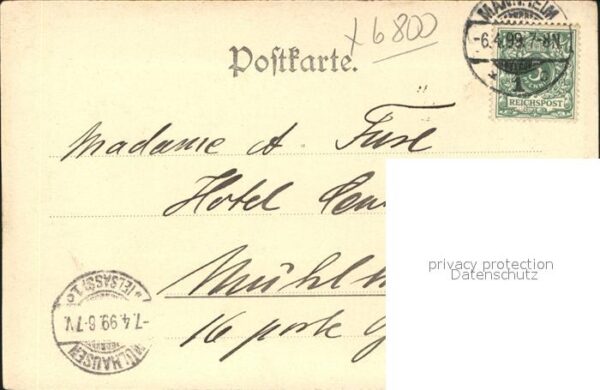 x 6800
MANNHEIM
-6.4.99.7-8N.
* 1
REICHSPOST
Postkarte.
Madame A Fuse
Hotel Cen
privacy protection
Datenschutz
Mühlh
16 porte
MÜLHAUSEN
-7.4.99.6-7V.
(ELSASS) 1